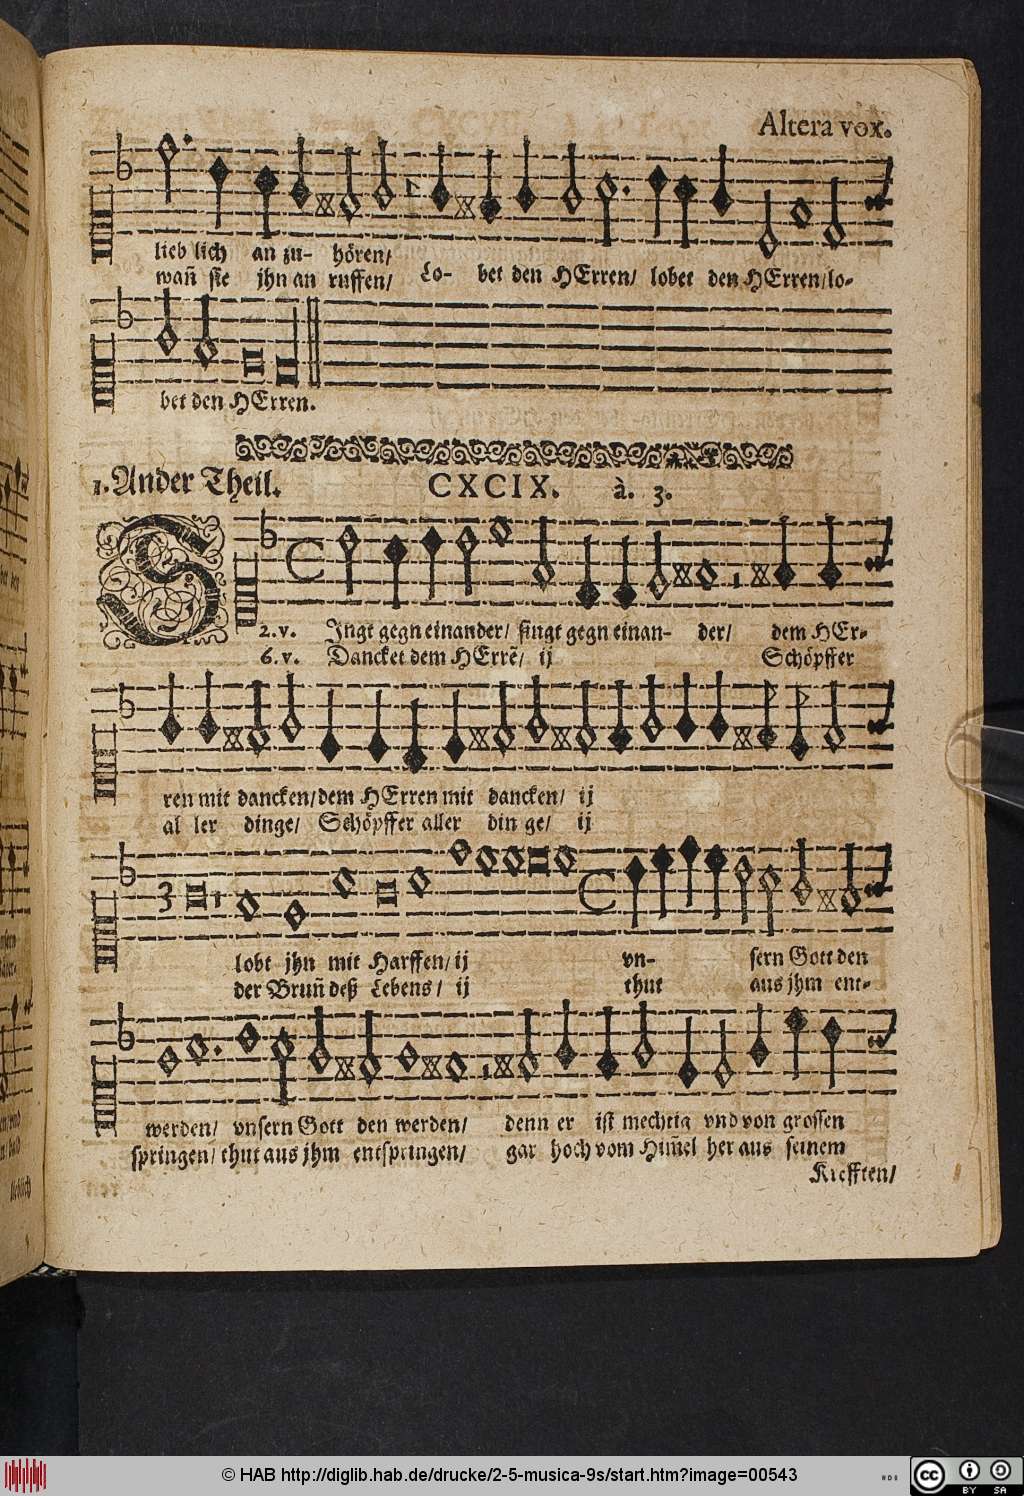 Altera vox.
lieb lich an zu- hören/
wañ sie jhn an ruffen/ Lo- bet den HErren/ lobet den HErren/lo-
bet den HErren.
1. Ander Theil. CXCIX. à. 3.
S
2. v. Ingt gegn einander/ singt gegn einan- der/ dem HEr-
6. v. Dancket dem HErrẽ/ ij Schöpffer
ren mit dancken/dem HErren mit dancken/ ij
al ler dinge/ Schöpffer aller din ge/ ij
3
lobt jhn mit Harffen/ ij vn- sern Gott den
der Bruñ deß Lebens/ ij thut aus jhm ent-
werden/ vnsern Gott den werden/ denn er ist mechtig vnd von grossen
springen/ thut aus jhm entspringen/ gar hoch vom Him̃el her aus seinem
Krefften/
© HAB http://diglib.hab.de/drucke/2-5-musica-9s/start.htm?image=00543
cc BY SA